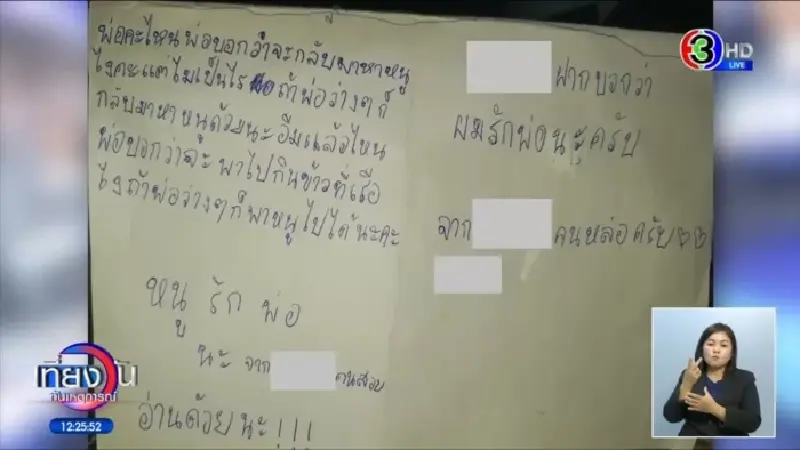 พ่อคะไหนพ่อบอกว่าจะกลับมาหาหนู
ไงคะแต่ไม่เป็นไร ถ้าพ่อว่างๆก็
กลับมาหาหนูด้วยนะอืมแล้วไหน
พ่อบอกว่าจะพาไปกินข้าวที่เรือ
ไงถ้าพ่อว่างๆก็พาหนูไปได้นะคะ
หนู รัก พ่อ
นะ จาก คนสวย
อ่านด้วยนะ!!!
ฝากบอกว่า
ผมรักพ่อนะครับ
จาก คนหล่อครับ
3 HD
LIVE
เที่ยงวัน
ทันเหตุการณ์
12:25:52